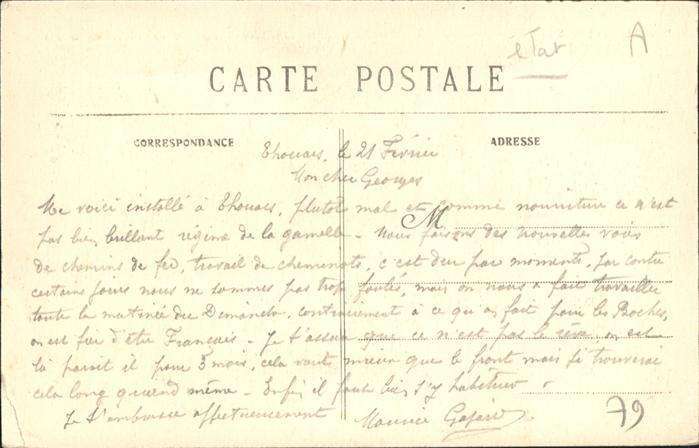 état
A
CARTE POSTALE
CORRESPONDANCE
ADRESSE
Thouars, le 21 Février
Mon cher Georges
M
Me voici installé à Thouars, plutôt mal et comme nourriture ce n'est
pas bien brillant régime de la gamelle - Nous faisons des nouvelles voies
de chemins de fer, travail de cheminots, c'est dur par moments, par contre
certains jours nous ne sommes pas trop, mais on nous a fait travailler
toute la matinée du Dimanche, contrairement à ce qu'on fait pour les Boches,
on est fier d'être Français - Je t'assure que ce n'est pas le rêve, on est
là parait il pour 3 mois, cela vaut mieux que le front mais je trouverai
cela long quand même - Enfin, il faut bien s'y habituer
Je t'embrasse affectueusement
Maurice
79